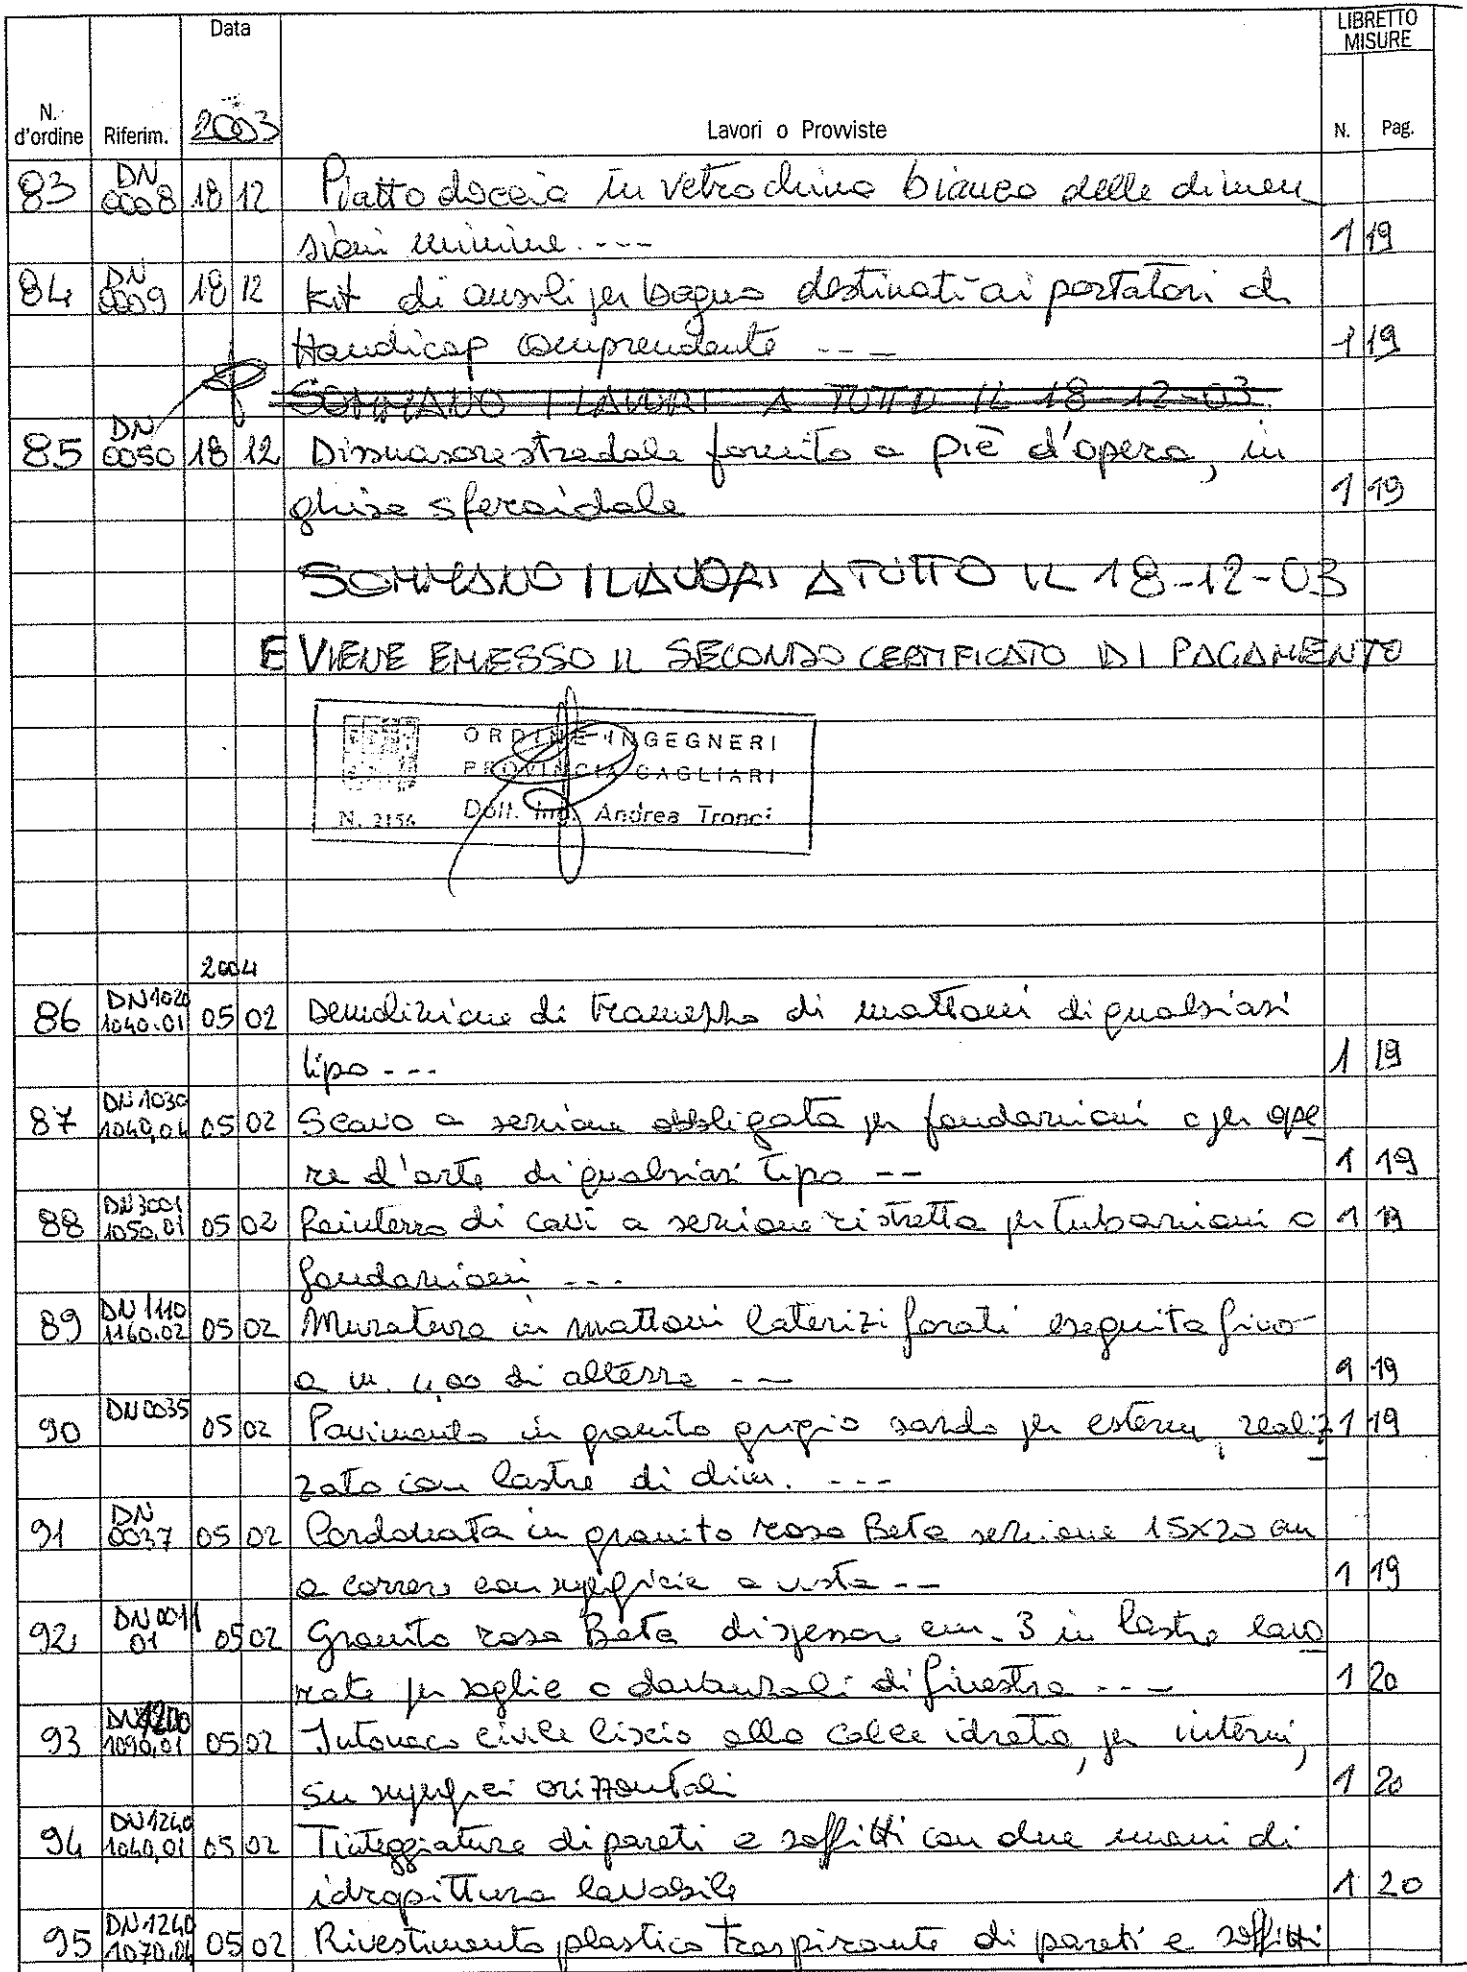 Data LIBRETTO MISURE
N. d'ordine Riferim. 2003 Lavori o Provviste N. Pag.
83 DN 0008 18 12 Piatto doccia in vetrochina bianco delle dimen
sioni minime. --- 1 19
84 DN 0009 18 12 Kit di ausili per bagno destinati ai portatori di
Handicap comprendente --- 1 19
SOMMANO I LAVORI A TUTTO IL 18-12-03
85 DN 0050 18 12 Dissuasore stradale fornito a piè d'opera, in
ghisa sferoidale 1 19
SOMMANO I LAVORI A TUTTO IL 18-12-03
E VIENE EMESSO IL SECONDO CERTIFICATO DI PAGAMENTO
ORDINE INGEGNERI
PROVINCIA CAGLIARI
N. 2156 Dott. Ing. Andrea Tronci
2004
86 DN1020 1040.01 05 02 Demolizione di tramezzo di mattoni di qualsiasi
tipo --- 1 19
87 DN1030 1040,04 05 02 Scavo a sezione obbligata per fondazioni o per ope
re d'arte di qualsiasi tipo -- 1 19
88 DN3001 1050,01 05 02 Reinterro di cavi a sezione ristretta per tubazioni o 1 19
fondazioni ---
89 DN1110 1160.02 05 02 Muratura in mattoni laterizi forati eseguita fino
a m. 4,00 di altezza -- 1 19
90 DN0035 05 02 Pavimento in granito grigio sardo per esterni, realiz 1 19
zato con lastre di dim. ---
91 DN 0037 05 02 Cordonata in granito rosa Beta sezione 15x20 cm
a correre con superficie a vista -- 1 19
92 DN0011 01 05 02 Granito rosa Beta di spessore cm. 3 in lastre lavo
rate per soglie o davanzali di finestra --- 1 20
93 1090,01 05 02 Intonaco civile liscio alla calce idrata, per interni,
su superfici orizzontali 1 20
94 DN1240 1040,01 05 02 Tinteggiatura di pareti e soffitti con due mani di
idropittura lavabile 1 20
95 DN1240 1070.04 05 02 Rivestimento plastico traspirante di pareti e soffitti